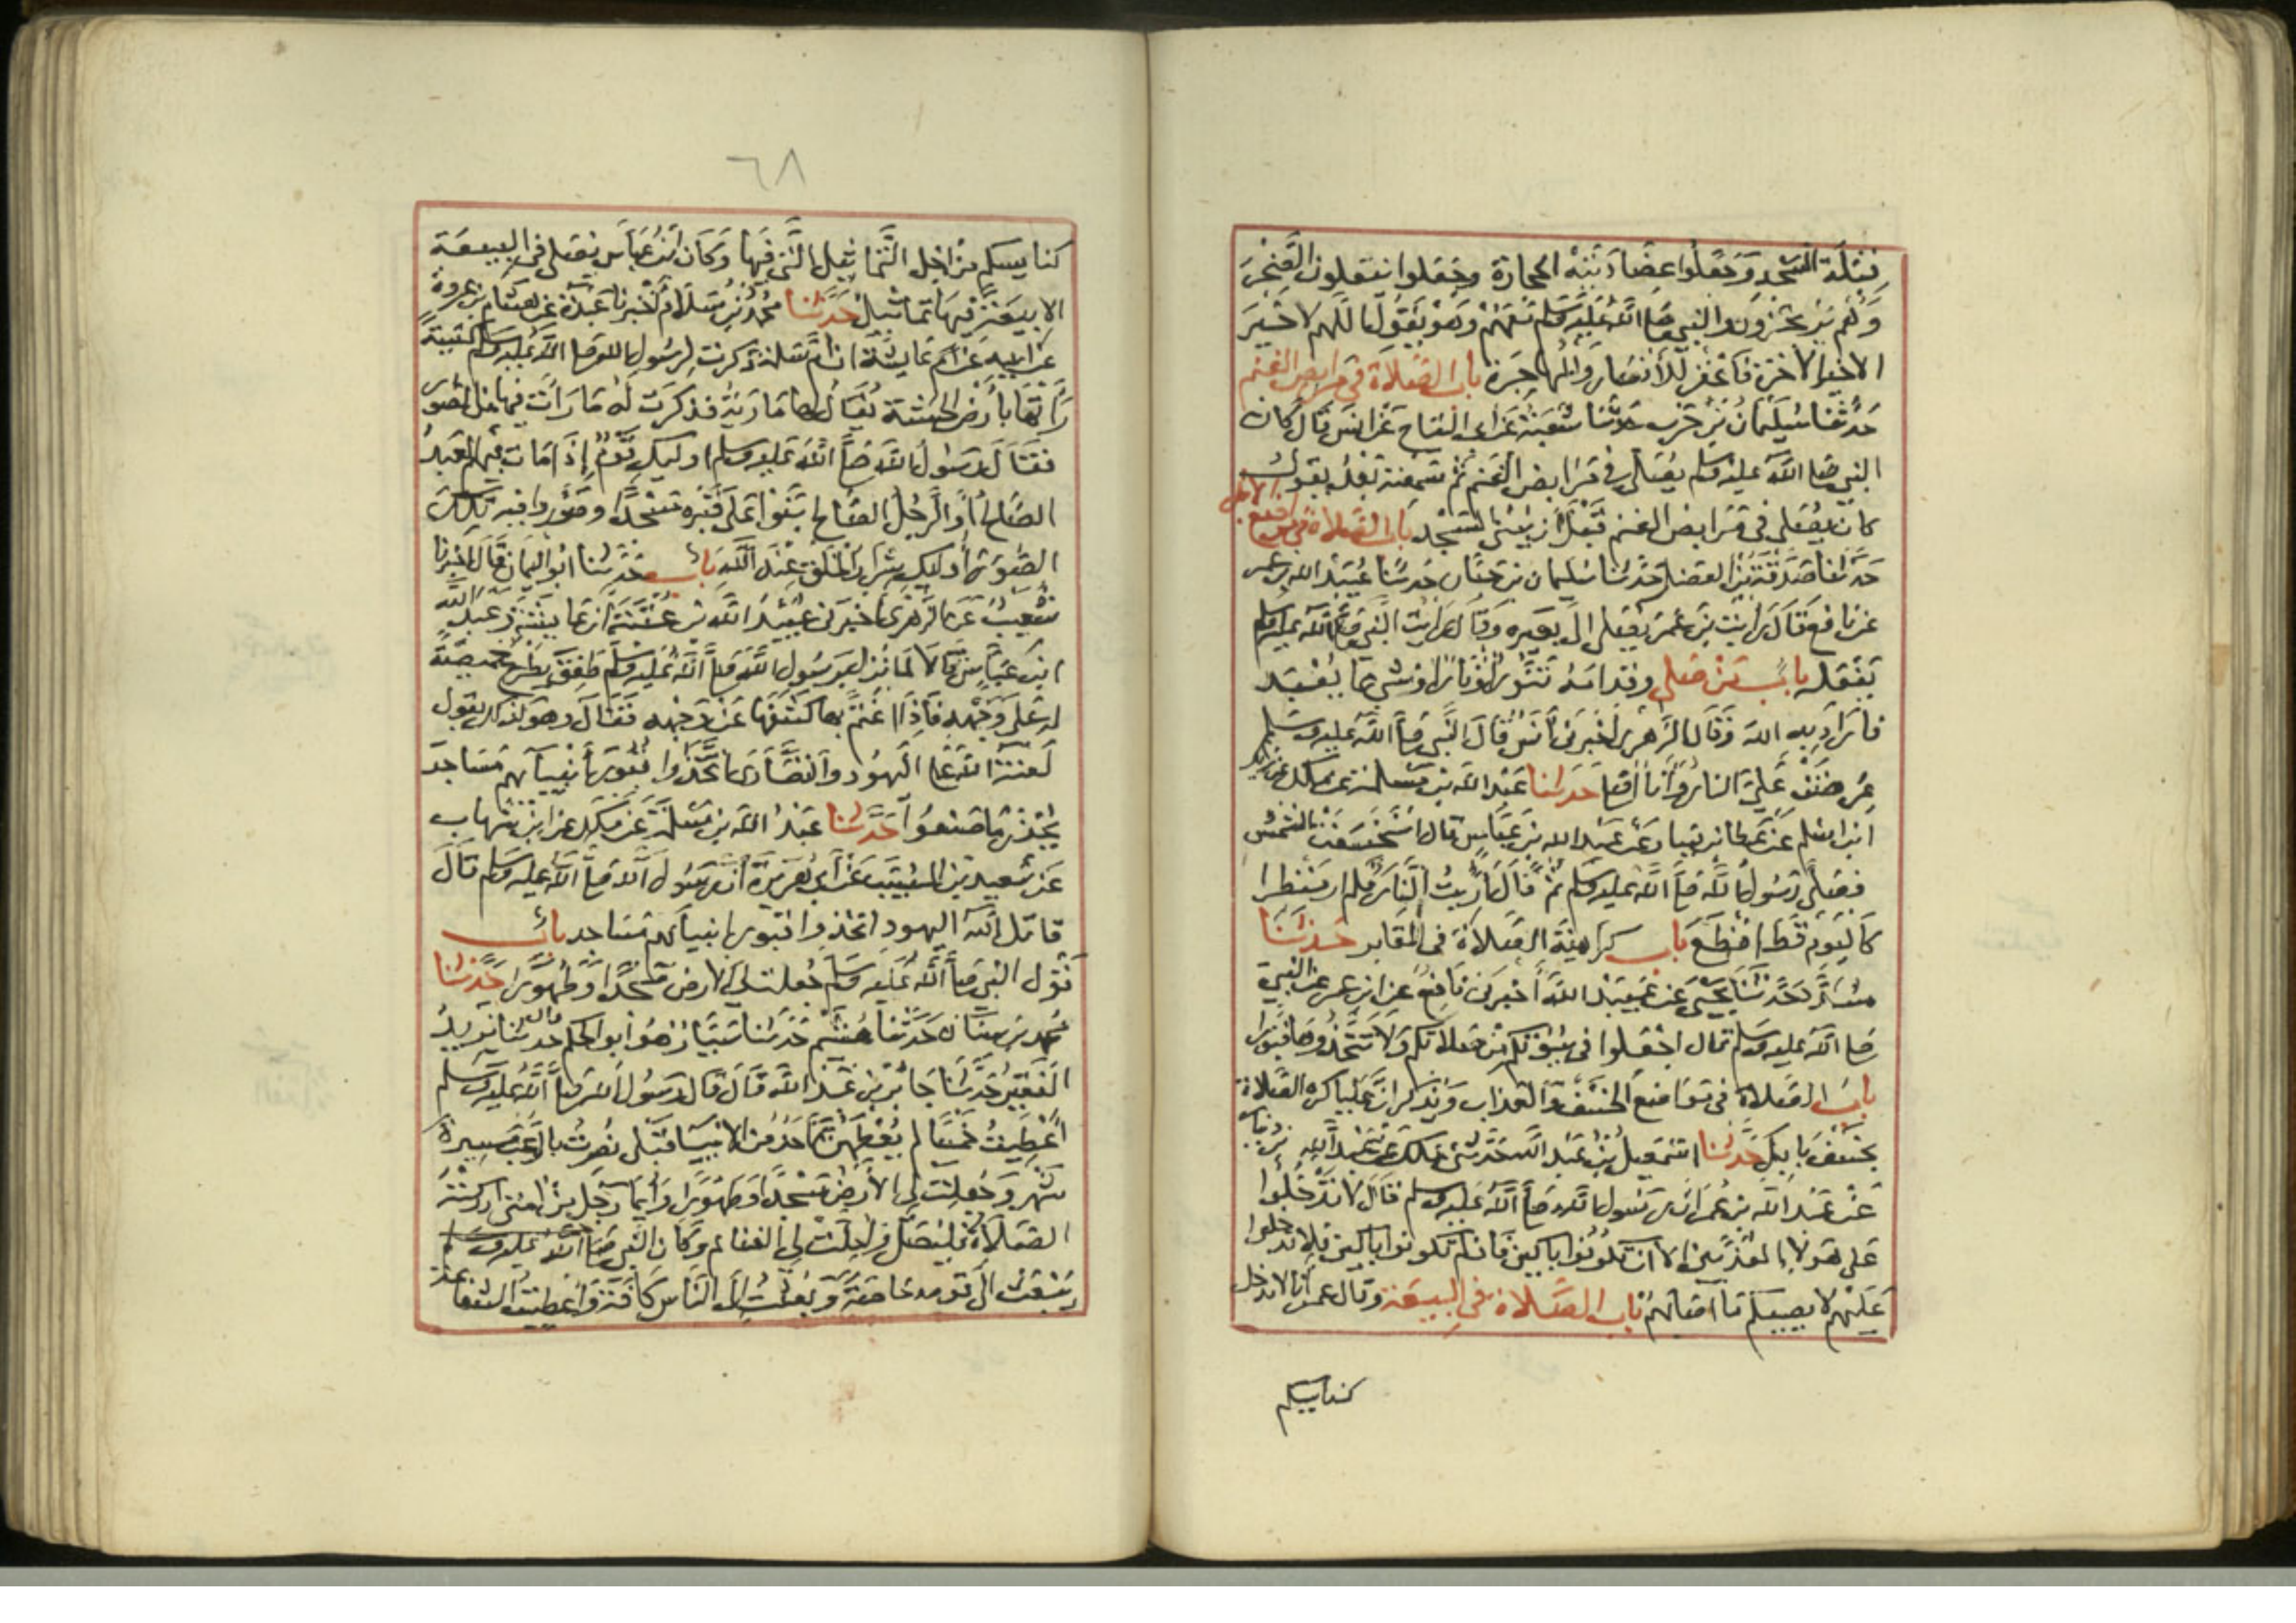 قبلة المسجد وجعلوا عضادتيه الحجارة وجعلوا ينقلون الصخر
وهم يرتجزون والنبي صلى الله عليه وسلم معهم وهو يقول اللهم لا خير
الا خير الاخرة فاغفر للأنصار والمهاجرة باب الصلاة في مرابض الغنم
حدثنا سليمان بن حرب حدثنا شعبة عن ابي التياح عن انس قال كان
النبي صلى الله عليه وسلم يصلي في مرابض الغنم ثم سمعته بعد يقول
كان يصلي في مرابض الغنم قبل أن يبنى المسجد باب الصلاة في مواضع الابل
حدثنا صدقة بن الفضل حدثنا سليمان بن حيان حدثنا عبيد الله
عن نافع قال رايت بن عمر يصلي الى بعيره وقال رايت النبي صلى الله عليه وسلم
يفعله باب من صلى وقدامه تنور او نار او شي مما يعبد
فاراد به الله وقال الزهري اخبرني أنس قال النبي صلى الله عليه وسلم
عرضت علي النار وأنا أصلي حدثنا عبد الله بن مسلمة عن ملك عن زيد
ابن اسلم عن عطا بن يسار عن عبد الله بن عباس قال انخسفت الشمس
فصلى رسول الله صلى الله عليه وسلم ثم قال اريت النار فلم ار منظرا
كاليوم قط افظع باب كراهية الصلاة في المقابر حدثنا
مسدد حدثنا يحيى عن عبيد الله أخبرني نافع عن ابن عمر عن النبي
صلى الله عليه وسلم قال اجعلوا في بيوتكم من صلاتكم ولا تتخذوها قبورا
باب الصلاة في مواضع الخسف والعذاب ويذكر ان عليا كره الصلاة
بخسف بابل حدثنا اسمعيل بن عبد الله حدثني ملك عن عبد الله بن دينار
عن عبد الله بن عمر ان رسول الله صلى الله عليه وسلم قال لا تدخلوا
على هولا المعذبين الا ان تكونوا باكين فان لم تكونوا باكين فلا تدخلوا
عليهم لا يصيبكم ما اصابهم باب الصلاة في البيعة وقال عمر انا لا ندخل
كنايسكم
٦٨
كنايسكم من اجل التماثيل التي فيها وكان ابن عباس يصلي في البيعة
الا بيعة فيها تماثيل حدثنا محمد بن سلام أخبرنا عبدة عن هشام بن عروة
عن ابيه عن عايشة ان ام سلمة ذكرت لرسول الله صلى الله عليه وسلم كنيسة
راتها بأرض الحبشة يقال لها مارية فذكرت له ما رأت فيها من الصور
فقال رسول الله صلى الله عليه وسلم اوليك قوم إذا مات فيهم العبد
الصالح أو الرجل الصالح بنوا على قبره مسجدا وصوروا فيه تلك
الصور أوليك شرار الخلق عند الله باب حدثنا ابو اليمان قال اخبرنا
شعيب عن الزهري اخبرني عبيد الله بن عبد الله بن عتبة ان عايشة وعبد الله
ابن عباس قالا لما نزل برسول الله صلى الله عليه وسلم طفق يطرح خميصة
له على وجهه فاذا اغتم بها كشفها عن وجهه فقال وهو كذلك يقول
لعنة الله على اليهود والنصارى اتخذوا قبور أنبيآئهم مساجد
يحذر ما صنعوا حدثنا عبد الله بن مسلمة عن ملك عن ابن شهاب
عن سعيد بن المسيب عن أبي هريرة أن رسول الله صلى الله عليه وسلم قال
قاتل الله اليهود اتخذوا قبور انبيائهم مساجد باب
قول النبي صلى الله عليه وسلم جعلت لي الارض مسجدا وطهورا حدثنا
محمد بن سنان حدثنا هشيم حدثنا سيار هو أبو الحكم قال حدثنا يزيد
الفقير حدثنا جابر بن عبد الله قال قال رسول الله صلى الله عليه وسلم
أعطيت خمسا لم يعطهن أحد من الانبيا قبلي نصرت بالرعب مسيرة
شهر وجعلت لي الأرض مسجدا وطهورا وأيما رجل من امتي ادركته
الصلاة فليصل واحلت لي الغنائم وكان النبي صلى الله عليه وسلم
يبعث الى قومه خاصة وبعثت الى الناس كافة وأعطيت الشفاعة